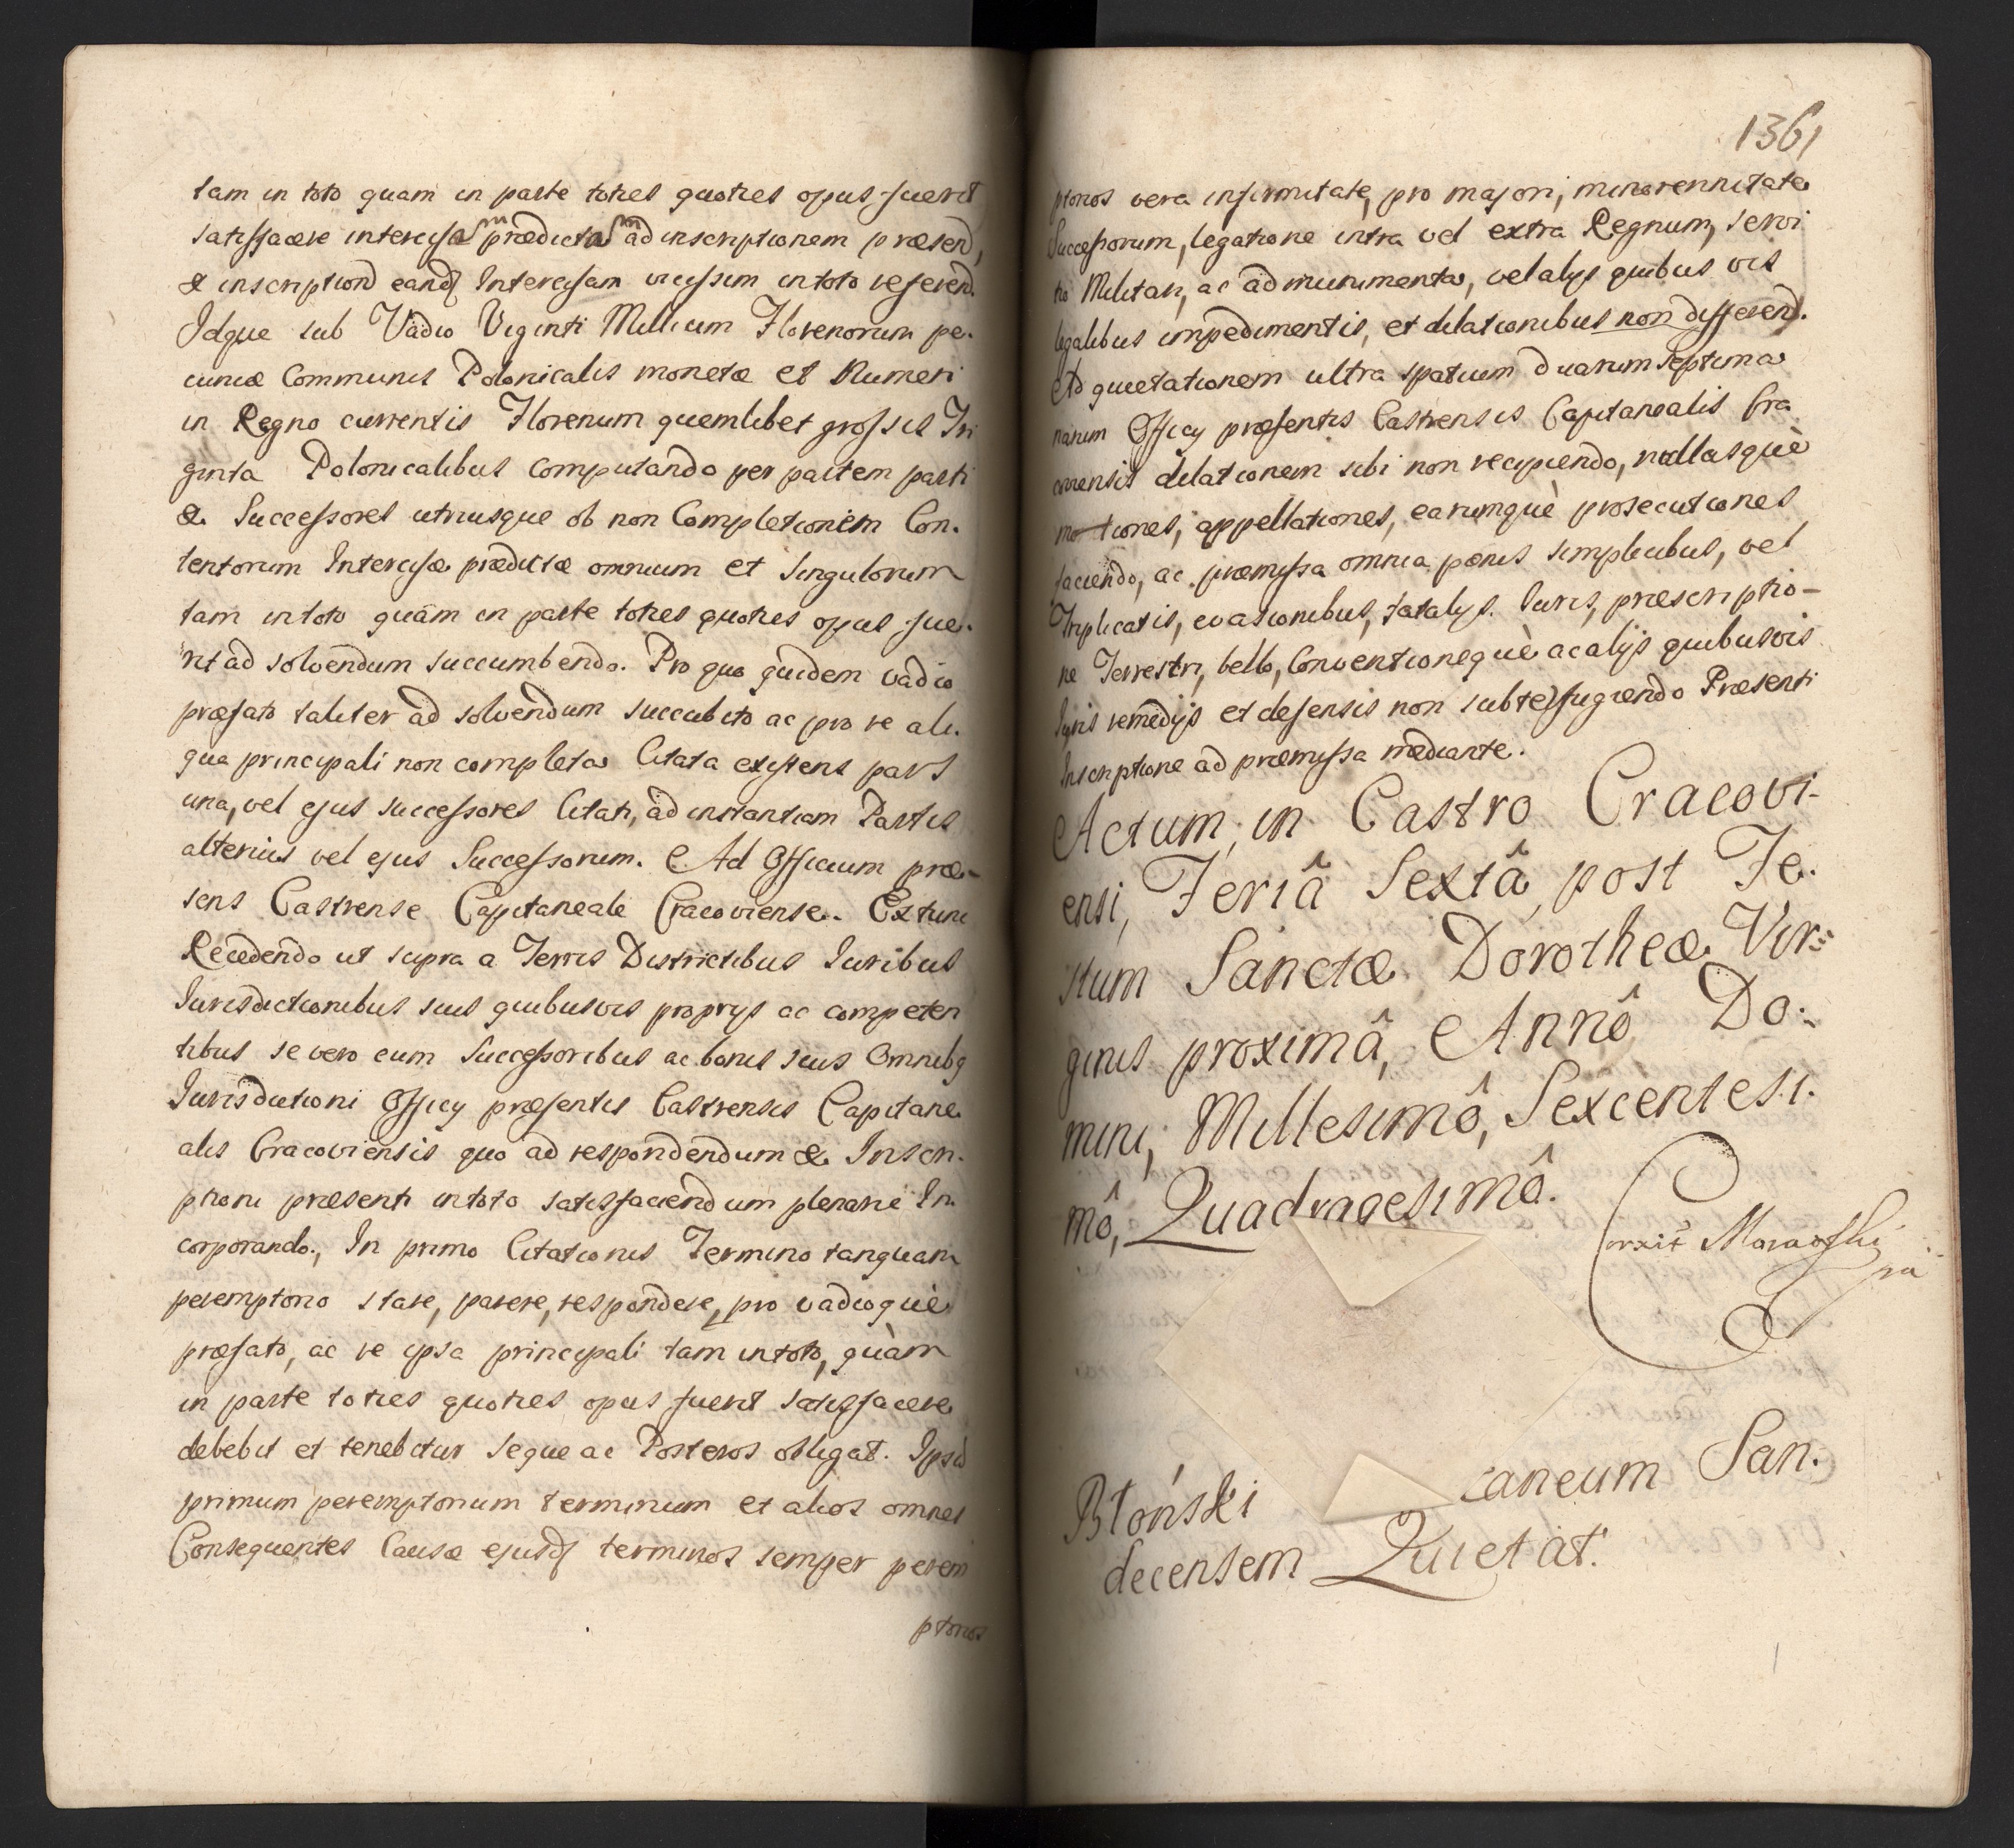 tam in toto quam in parte toties quoties opus fuerit
satisfacere intercisam prædictam ad inscriptionem præsend,
& inscription eand Intercisam vicissim in toto referend.
Idque sub Vadio Viginti Millium Florenorum pe.
cuniæ Communis Polonicalis monetæ et Numeri
in Regno currentis Florenum quemlibet grossis Tri
ginta Polonicalibus computando per partem parti
& Successores utriusque ob non Completionem Con.
tentorum Intercisæ prædictæ omnium et Singulorum
tam in toto quàm in parte toties quoties opus fue.
rit ad solvendum succumbendo. Pro quo quidem vadio
præfato taliter ad solvendum succubito ac pro re ali.
qua principali non completa Citata existens pars
una, vel ejus successores Citati, ad instantiam Partis
alterius vel ejus Successorum. Ad Officium præ-
sens Castrense Capitaneale Cracoviense. Extunc
Recedendo ut supra a Terris Districtibus Iuribus
Iurisdictionibus suis quibusvis proprijs ac competen
tibus se vero cum Successoribus ac bonis suis Omnibq
Iurisdictioni Officy præsentis Castrensis Capitane.
alis Cracoviensis quo ad respondendum & Inscri.
ptioni præsenti in toto satisfaciendum plenarie In.
corporando., In primo Citationis Termino tanquam
peremptorio stare, parere, respondere, pro vadioquè
præfato, ac re ipsa principali tam in toto, quàm
in parte toties quoties opus fuerit satisfacere
debebit et tenebitur seque ac Posteros obligat. Ipsū
primum peremptorium terminum et alios omnes
Consequentes Causæ ejusd terminos semper perem
ptorios
1361
ptorios vera infirmitate, pro majori, minorennitate
Successorum, legatione intra vel extra Regnum, servi
tio Militari, ac ad munimenta, vel alijs quibus vis
legalibus impedimentis, et dilationibus non differend.
Ad quietationem ultra spatium duarum septima
narum Officy præsentis Castrensis Capitanealis Cra
coviensis dilationem sibi non recipiendo, nullasquè
motiones, appellationes, earumquè prosecutiones
faciendo, ac præmissa omnia pænis simplicibus, vel
Triplicatis, evasionibus, fatalijs Iuris, præscriptio-
ne Terrestri, bello, Conventionequè ac alijs quibusvis
Iuris remedijs et defensis non subterfugiendo Præsenti
Inscriptione ad præmissa mediante.
Actum, in Castro Cracovi-
ensi, Feriâ Sextâ post Fe.
stum Sanctæ Dorotheæ Vir=
ginis proximâ, Annô Do:
mini, Millesimô, Sexcentesi.
mô, Quadragesimô.
Correxit
Błoński caneum San.
decensem Quietat.